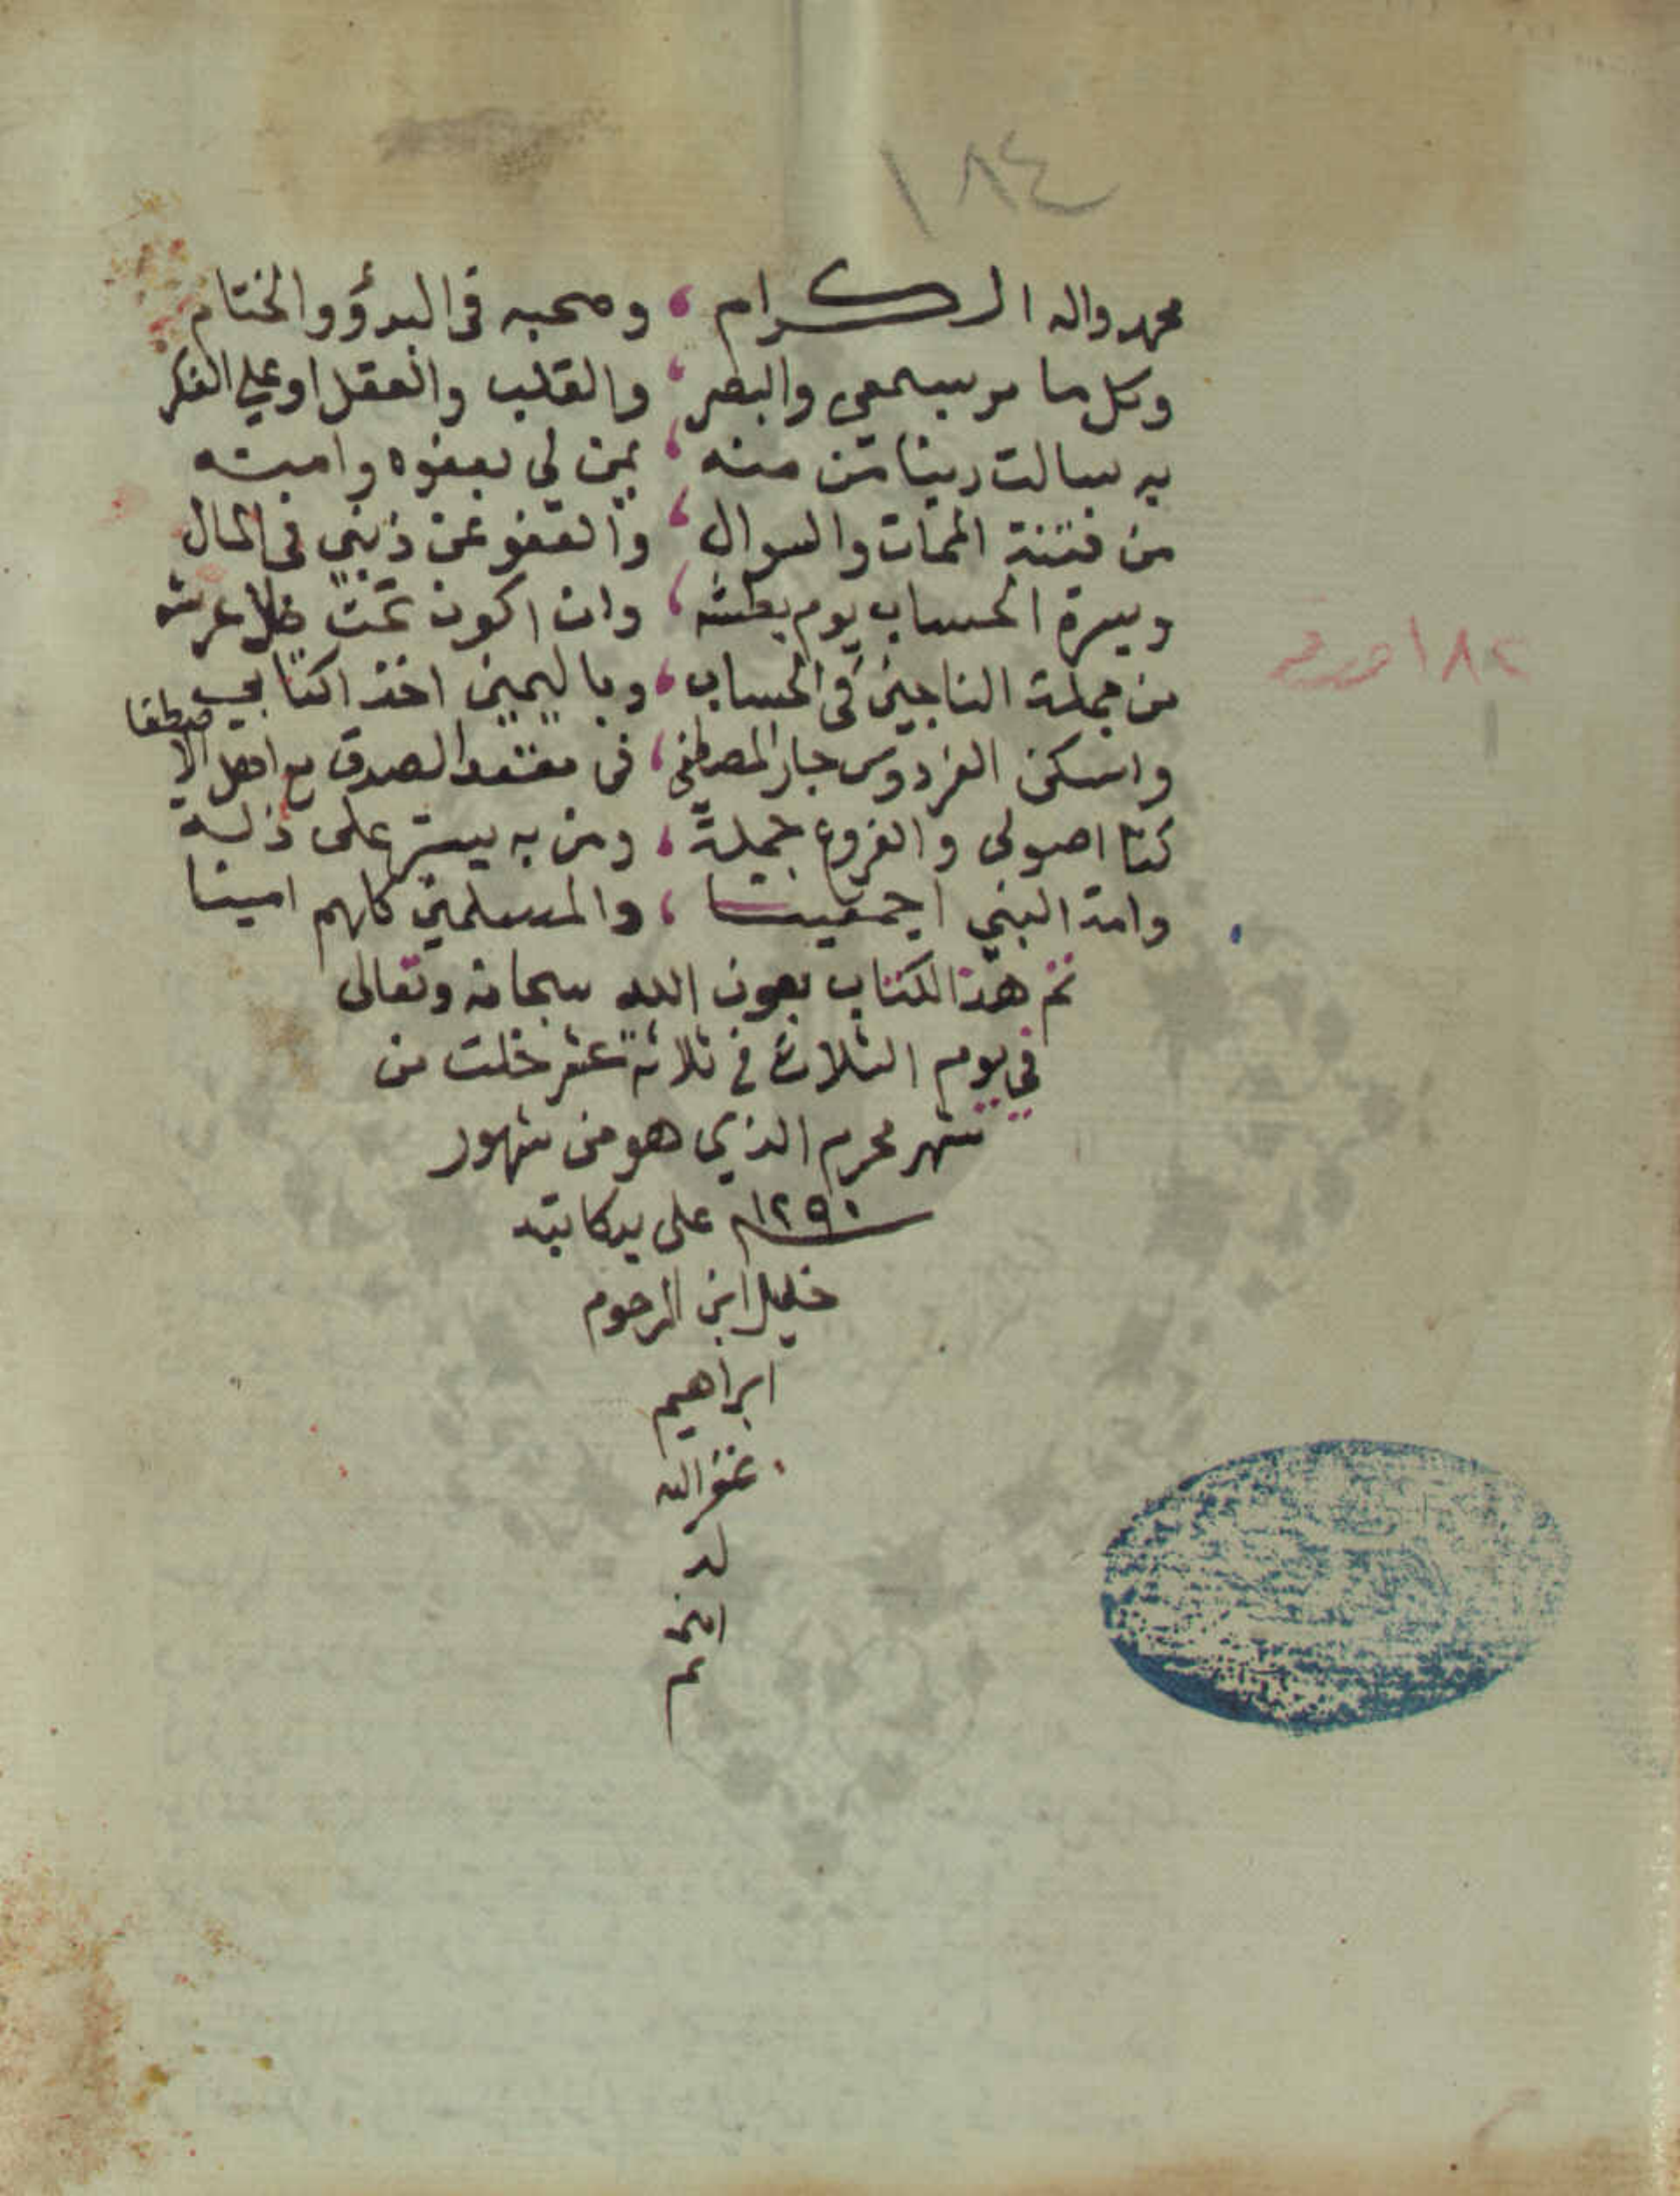 ١٨٤
محمد واله الكرام ، وصحبه فى البدؤ والختام
وكل ما مر بسمعي والبصر ، والقلب والعقل او علي الفكر
به سالت ربنا من منه ، يمن لي بعفوه وامنه
من فتنة الممات والسوال ، والعفو عن ذنبي فى المال
ويسرة الحساب يوم بطشه ، وان اكون تحت ظل عرشه
من جملة الناجين فى الحساب ، وباليمين اخذ اكتابي
واسكن الفردوس جار المصطفى ، فى مقعد الصدق مع اهل الا صطفا
كذا اصولى والفروع جملة ، ومن به يستر على ذلة
وامة النبي اجمعينا ، والمسلمين كلهم امينا
تم هذا الكتاب بعون الله سبحانه وتعالى
في يوم الثلاث في ثلاثة عشر خلت من
شهر محرم الذي هو من شهور
١٢٩٠ على يد كاتبه
خليل ابن المرحوم
ابراهيم
غفر الله
له
١٨٢